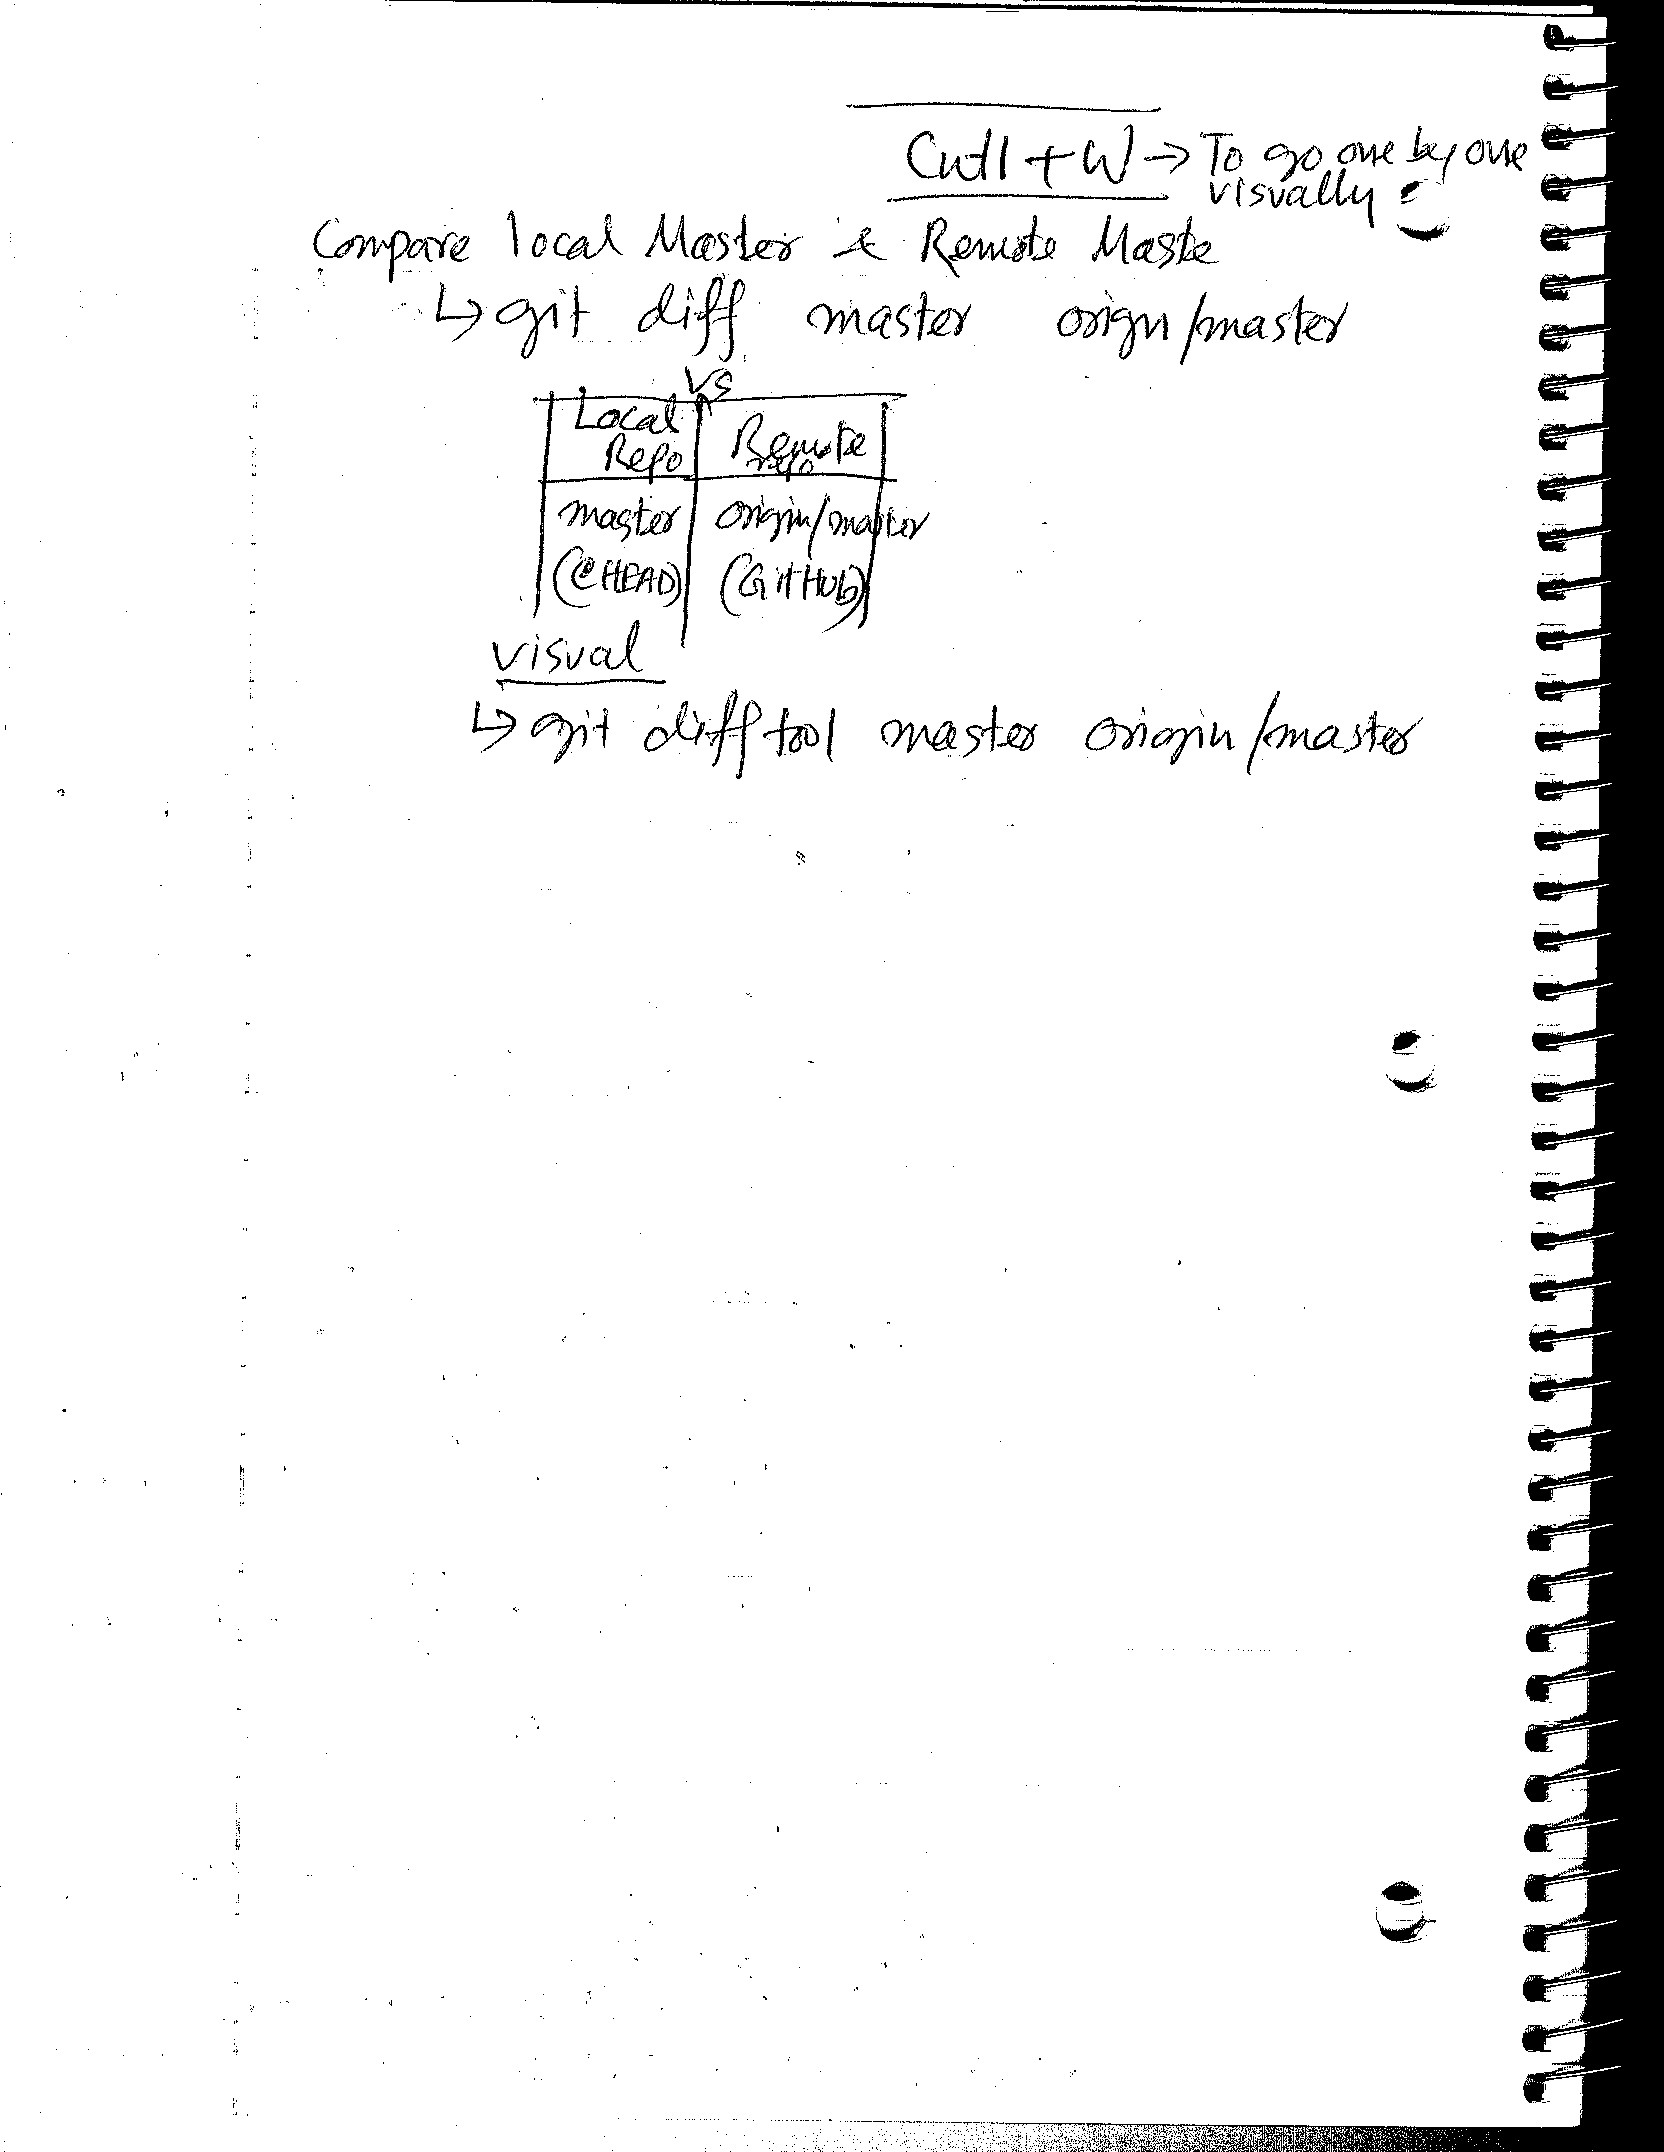 Cntl + W → To go one by one
visually
Compare local Master & Remote Maste
↳ git diff master orign/master
vs
Local Repo Remote repo
master origin/master
(@HEAD) (GitHub)
visual
↳ git difftool master origin/master